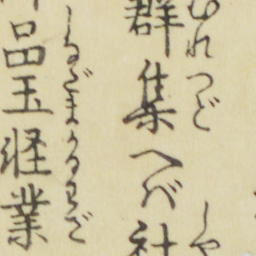 むれつど　しや
群集へバ社
しなだまかるわざ
品玉経業